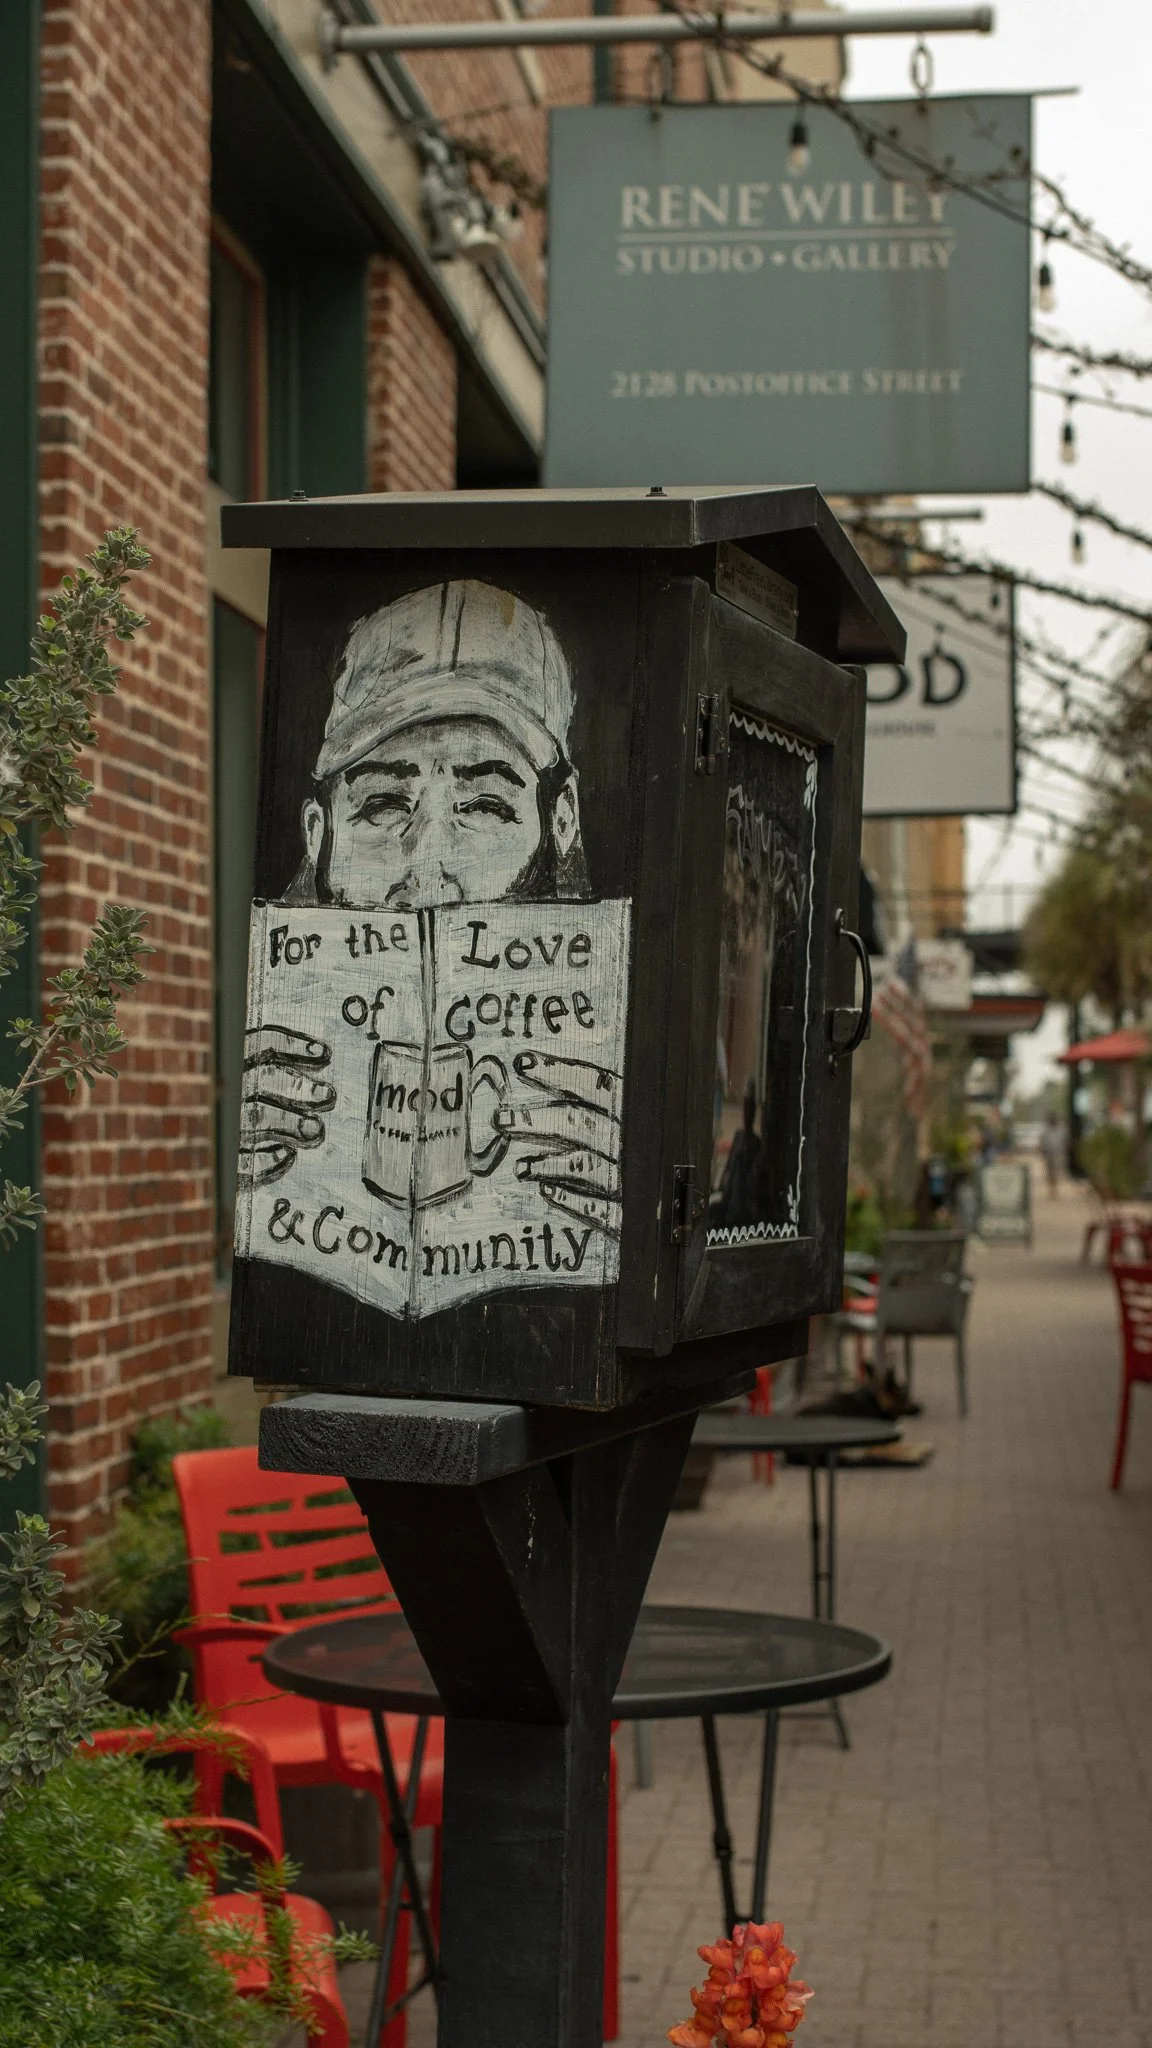 RENE' WILEY
STUDIO • GALLERY
2128 POSTOFFICE STREET
OD
For the Love
of Coffee
mood
Coffee House
& Community